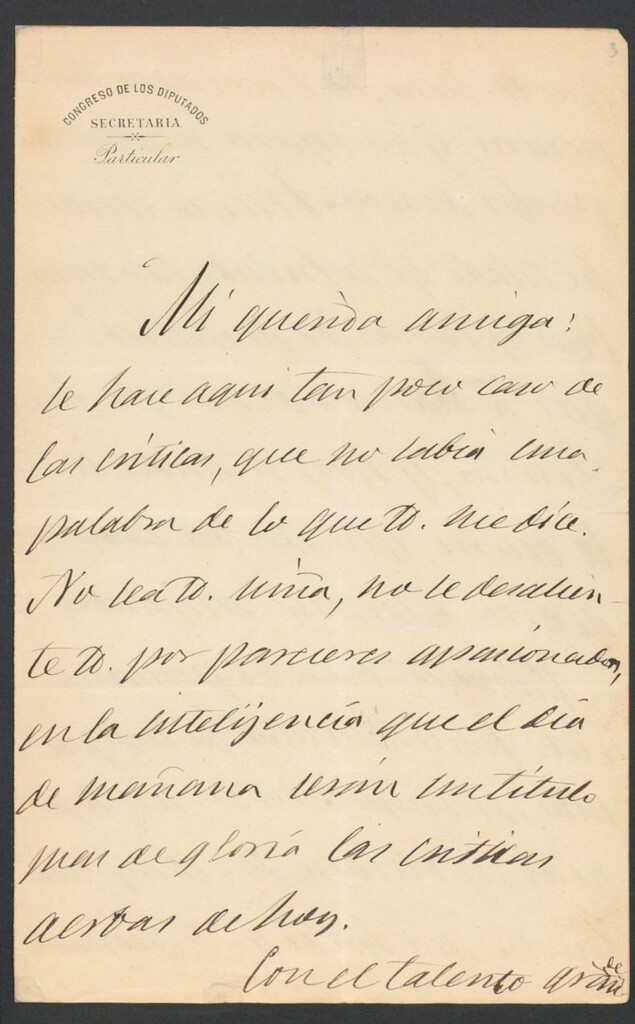 3
CONGRESO DE LOS DIPUTADOS
SECRETARIA
Particular
Mi querida amiga:
se hace aqui tan poco caso de
las criticas, que no sabia una
palabra de lo que V. me dice.
No sea V. niña, no se desalien-
te V. por pareceres apasionados,
en la intelijencia que el dia
de mañana serán un título
mas de gloria las criticas
acerbas de hoy.
Con el talento grande